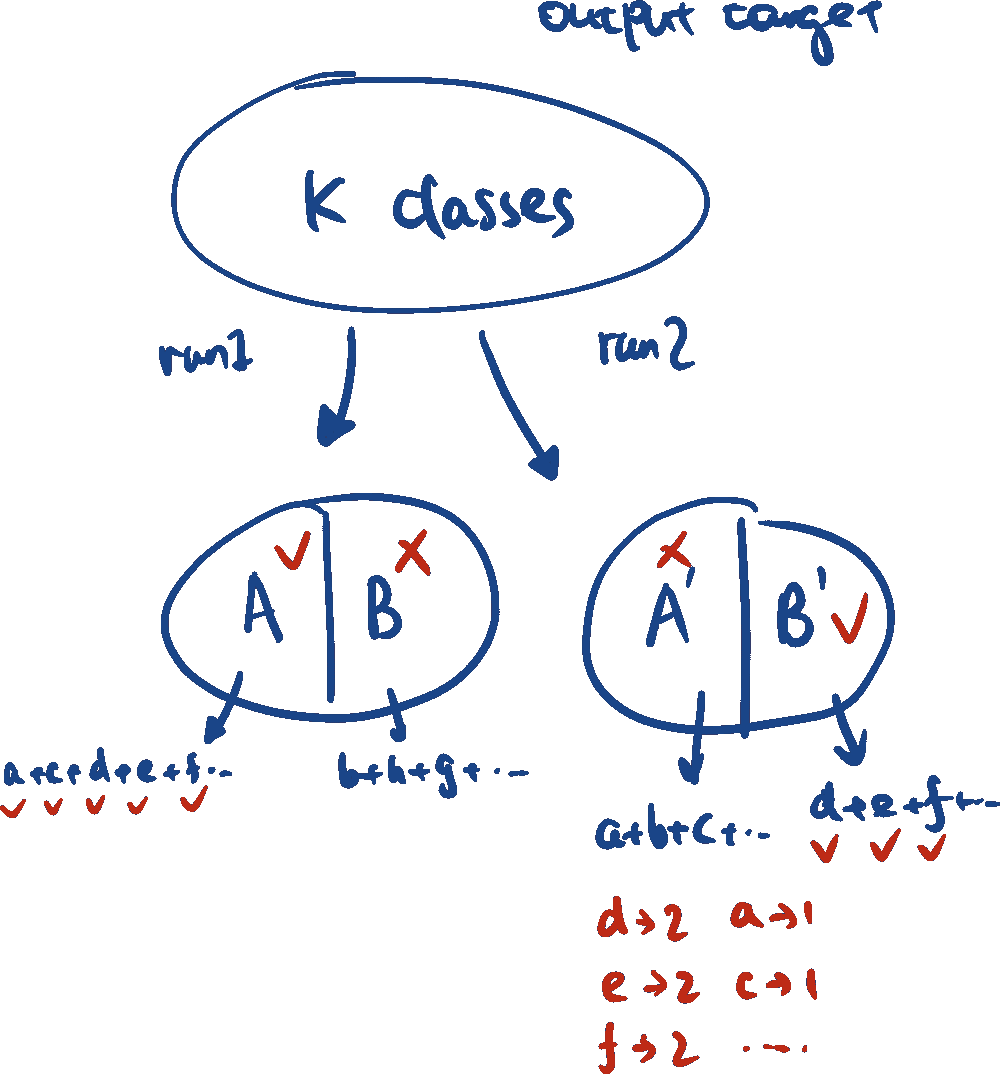 output target
K classes
run1
run2
A ✓ B ✗
✗ A' B' ✓
a+c+d+e+f...
✓ ✓ ✓ ✓ ✓
b+h+g+...
a+b+c+...
d+e+f+...
✓ ✓ ✓
d→2 a→1
e→2 c→1
f→2 ...